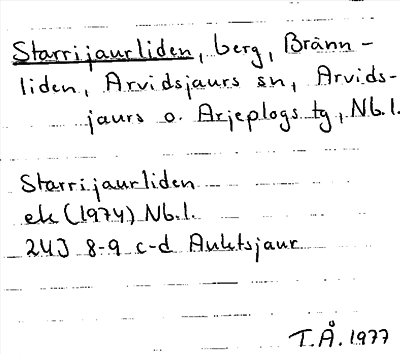 Starrijaurliden, berg, Bränn-
liden, Arvidsjaurs sn, Arvids-
jaurs o. Arjeplogs tg, Nb.l.
Starrijaurliden
ek (1974) Nb.l.
24J 8-9 c-d Auktsjaur
T.Å. 1977